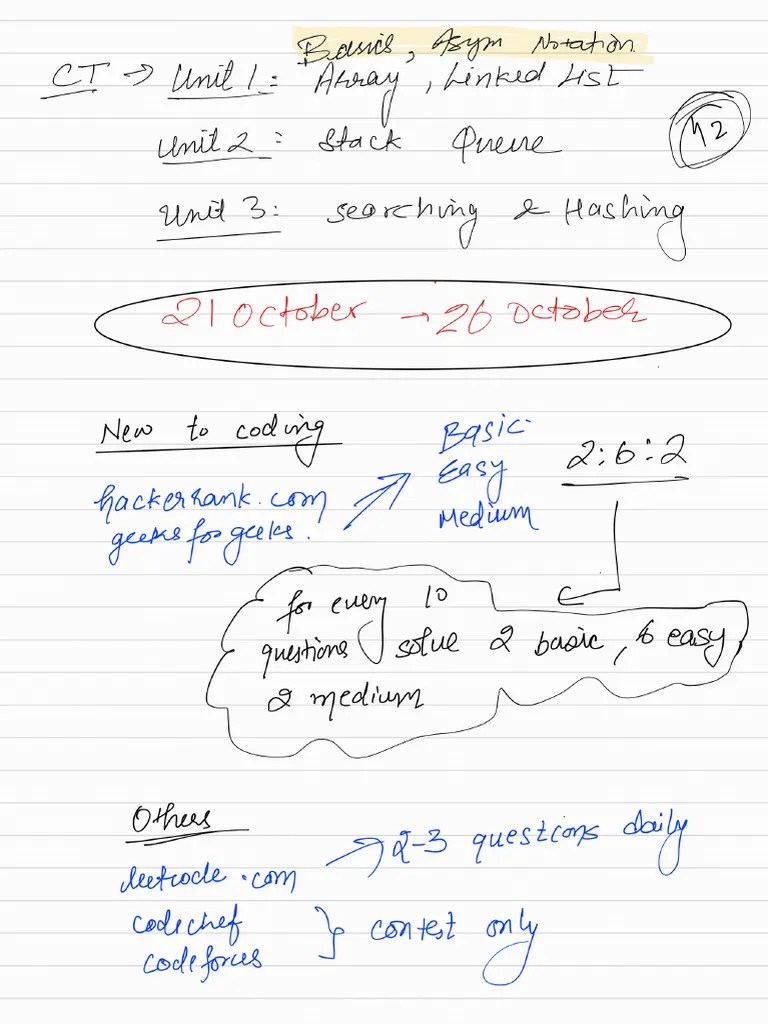 Basics, Asym Notation
CT → Unit 1: Array, Linked List
Unit 2: Stack Queue
Unit 3: Searching & Hashing
21 October → 26 October
New to coding
hackerrank.com
geeksforgeeks.
Basic
Easy
Medium
2:6:2
for every 10
questions solve 2 basic, 6 easy,
2 medium
Others
leetcode.com → 2-3 questions daily
codechef
codeforces } contest only